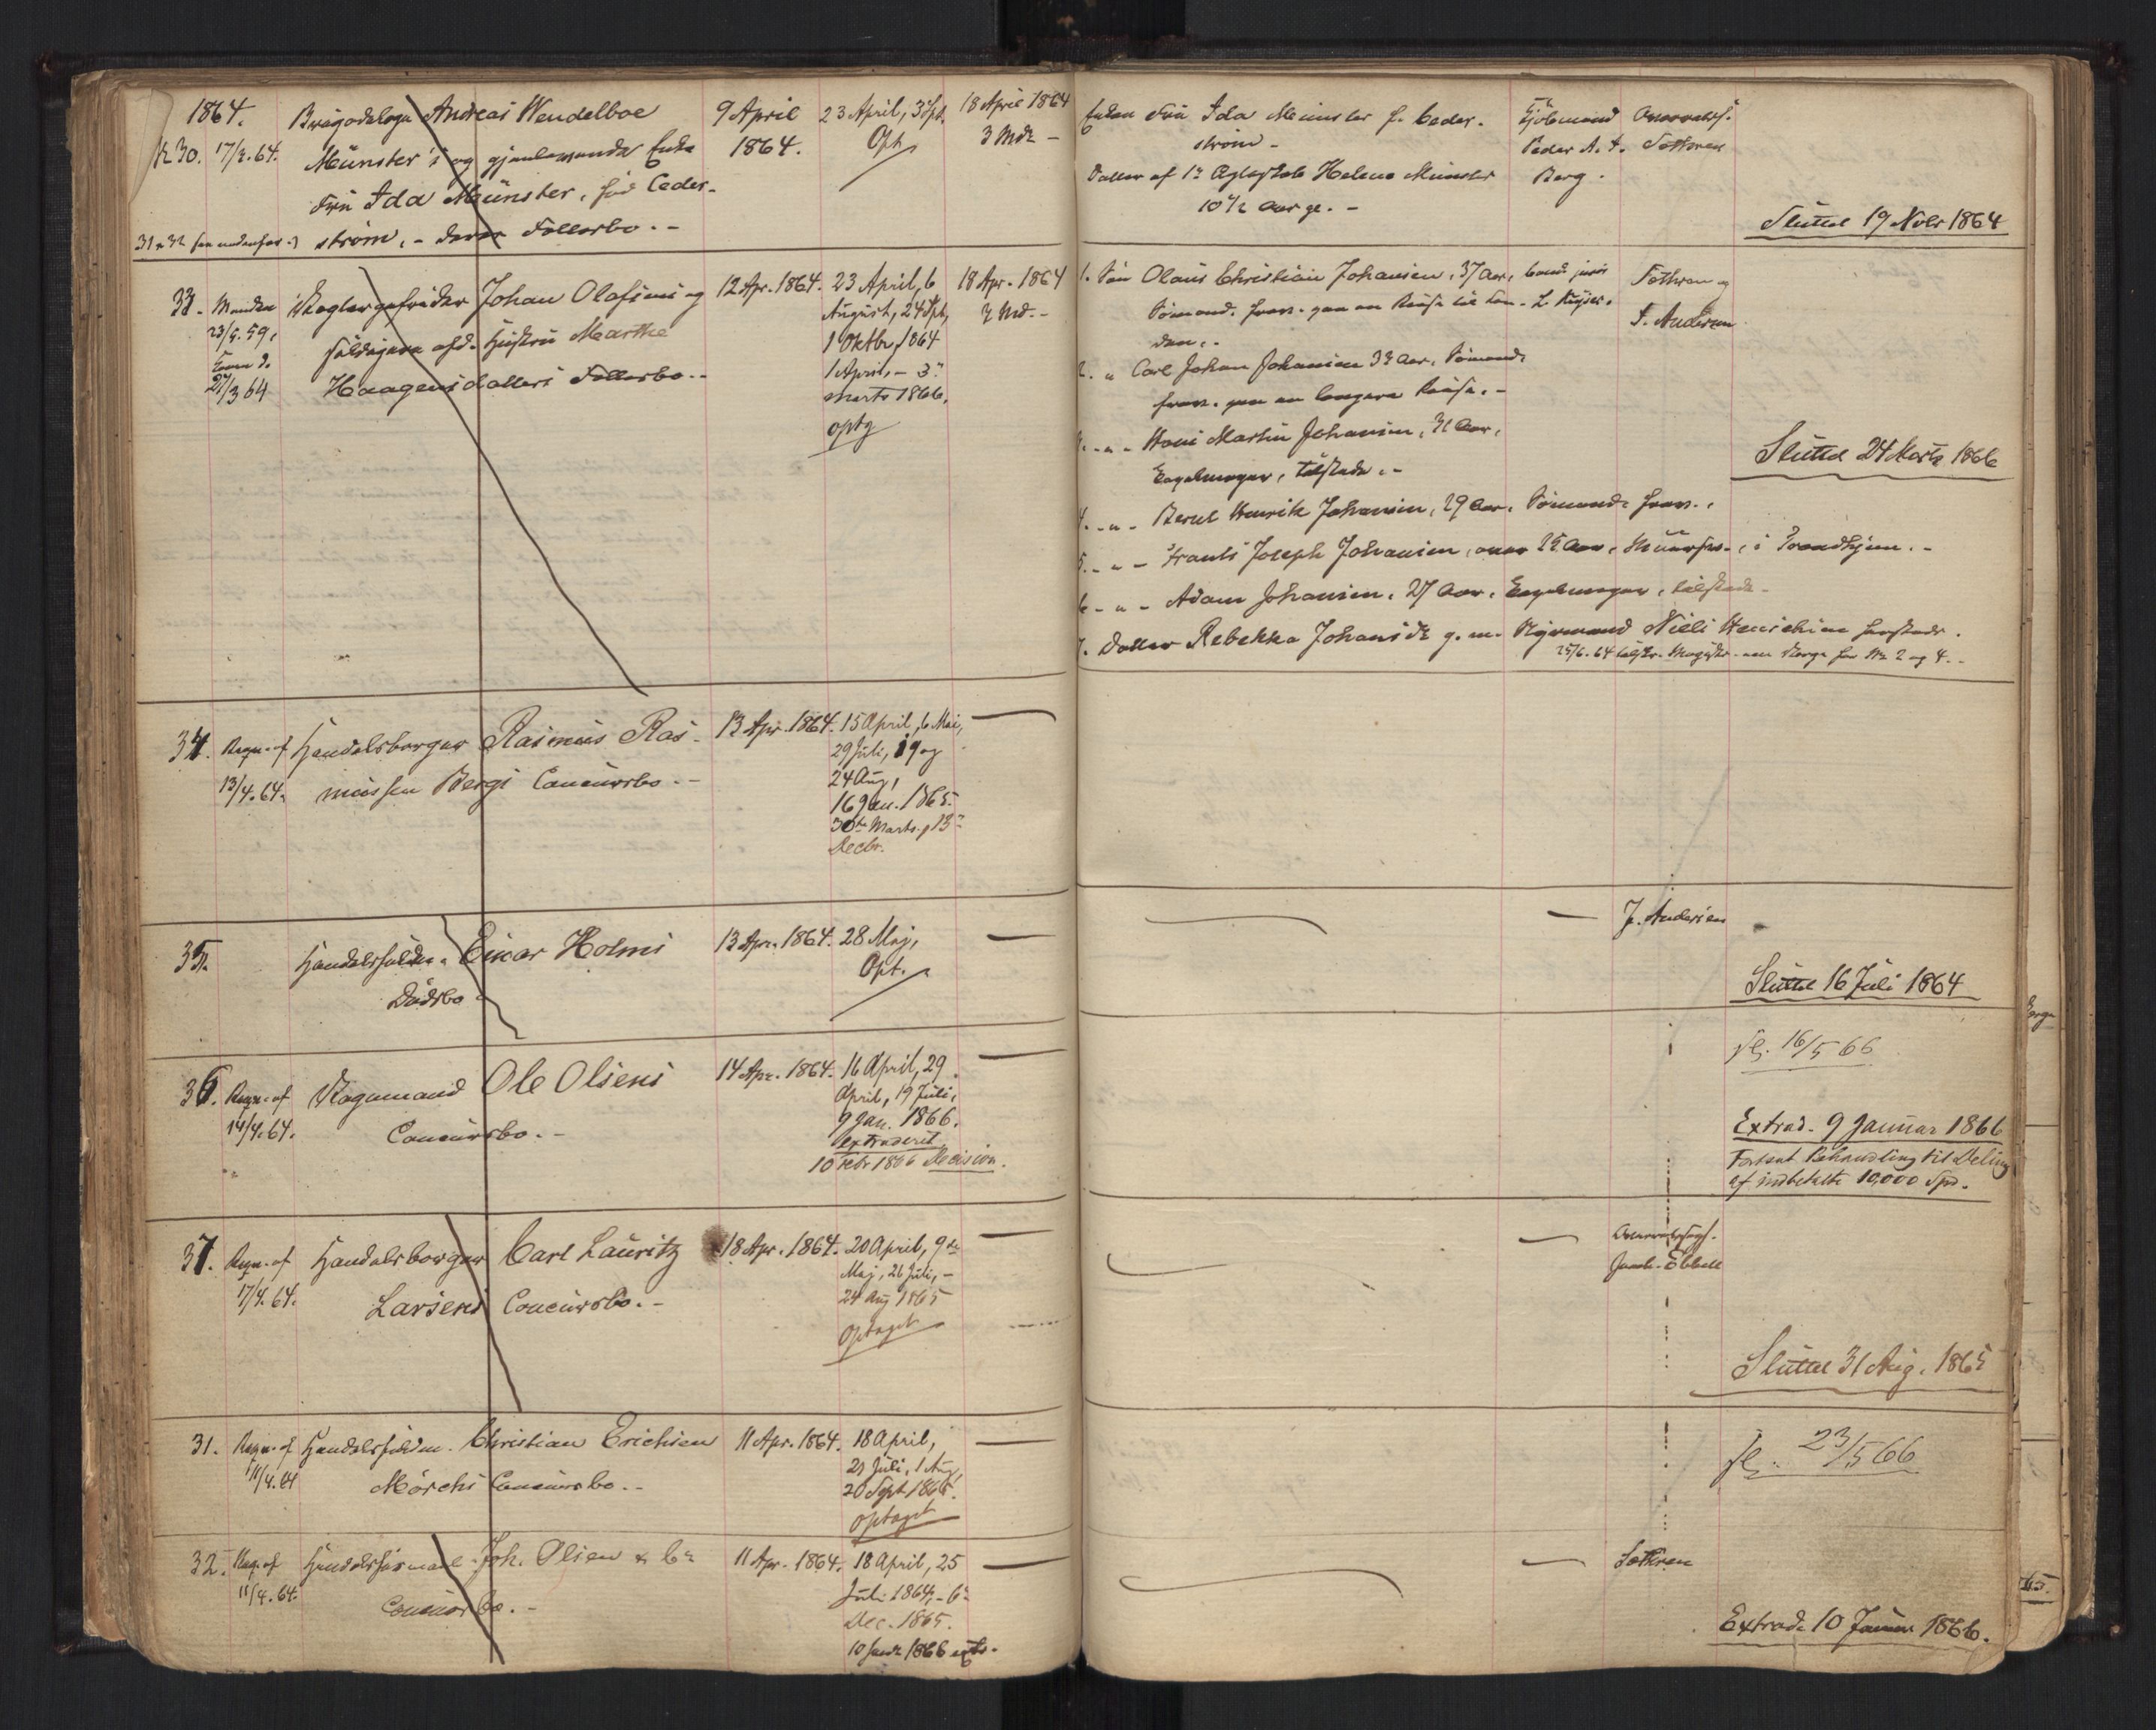 1864.
No 30. 17/2.64.
Andreas Wendelboe
Münster's og gjenlevende Enke
Fru Ida Münster, fød Ceder-
strøm, - deres Fællesbo. -
31 & 32
9 April
1864.
23 April, 3 Spt.
Opt
18 April 1864
3 Mdr -
Enken Fru Ida Münster f. Ceder-
strøm -
Datter af 1e Ægteskab Helene Münster
10 1/2 Aar gl. -
Kjøbmand
Peder A. F.
Berg.
Overretssf.
Sothren
Sluttet 19 Novbr 1864
33. Manden
23/5.59,
Konen d.
27/3 64
Johan Olafsens og
afd. Hustru Marthe
Haagensdatters Fællesbo. -
12 Apr. 1864.
23 April, 6
August, 24 Spt,
1 Oktbr, 1864
1 April, - 3e
Marts 1866.
optg
18 Apr. 1864
2 Md. -
1. Søn Olaus Christian Johansen, 37 Aar,
Sømand. frav. paa en Reise
2. " Carl Johan Johansen 33 Aar, Sømand.
frav. paa en længere Reise. -
3. - " - Hans Martin Johansen, 31 Aar,
tilstede. -
4. - " - Bernt Henrik Johansen, 29 Aar, Sømand. frav.,
5. - " - Frants Joseph Johansen, over 25 Aar, Muursv., i Trondhjem. -
6 - " - Adam Johansen, 27 Aar, tilstede -
7. Datter Rebekka Johansdr g. m. Niels
25/6.64 for No 2 og 4. -
Sothren og
J. Andersen
Sluttet 24 Marts 1866
34. Reqv. af
13/4.64.
Handelsborger Rasmus Ras-
mussen Bergs Concursbo. -
13 Apr. 1864.
15 April, 6 Mai,
29 Juli, 19 og
24 Aug,
16 Jan. 1865.
30te Marts, 13e
Decbr.
35.
Einar Holms
Dødsbo
13 Apr. 1864.
28 Maj,
Opt.
J. Andersen
Sluttet 16 Juli 1864
36. Reqv. af
14/4.64.
Vognmand Ole Olsens
Concursbo. -
14 Apr. 1864.
16 April, 29
April, 19 Juli,
9 Jan. 1866.
extraderet
10 Febr 1866 Decision.
16/5 66
Extrad. 9 Januar 1866
Fortsat Behandling til Deling
af indbetalte 10,000 Spd.
37. Reqv. af
17/4.64.
Handelsborger Carl Lauritz
Larsens Concursbo. -
18 Apr. 1864.
20 April, 9de
Maj, 26 Juli, -
24 Aug 1865
optaget
Overretssagf.
Ebbell
Sluttet 31 Aug. 1865
31. Reqv. af
11/4.64
Christian Erichsen
Mørchs Concursbo. -
11 Apr. 1864.
18 April,
21 Juli, 1 Aug,
20 Sept 1865.
optaget
23/5 66
32. Reqv. af
11/4.64.
Joh. Olsen & Co
Concursbo. -
11 Apr. 1864.
18 April, 25
Juli 1864, - 6e
Dec. 1865.
10 Janr 1866 extr.
Sothren
Extrad. 10 Januar 1866.